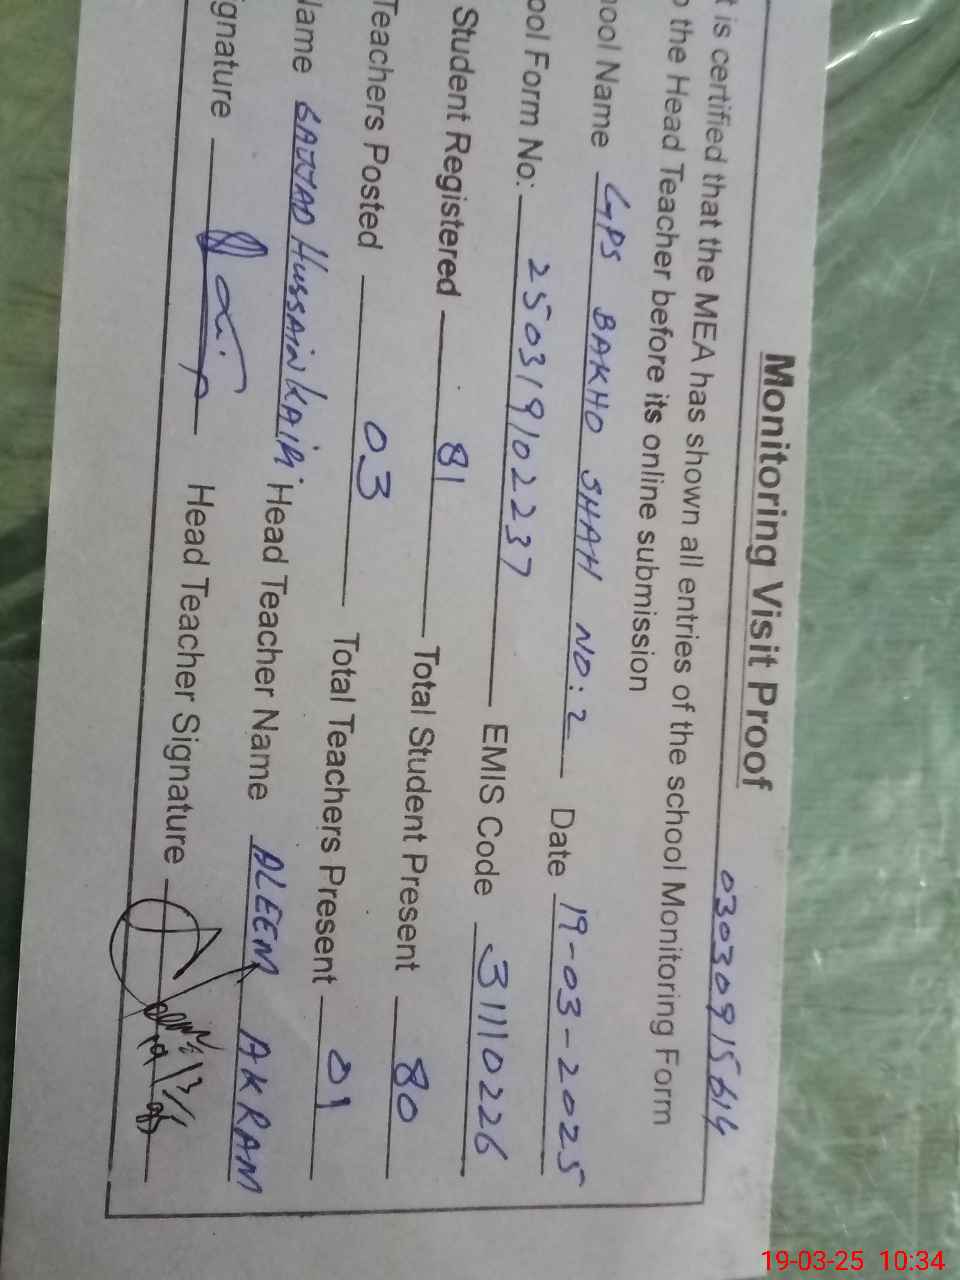 Monitoring Visit Proof
03030915614
t is certified that the MEA has shown all entries of the school Monitoring Form
o the Head Teacher before its online submission
ool Name GPS BAKHO SHAH NO:2 Date 19-03-2025
ool Form No: 250319102237 EMIS Code 31110226
Student Registered 81 Total Student Present 80
Teachers Posted 03 Total Teachers Present 01
Name SAJJAD HUSSAIN Head Teacher Name ALEEM AKRAM
ignature Head Teacher Signature
19-03-25 10:34